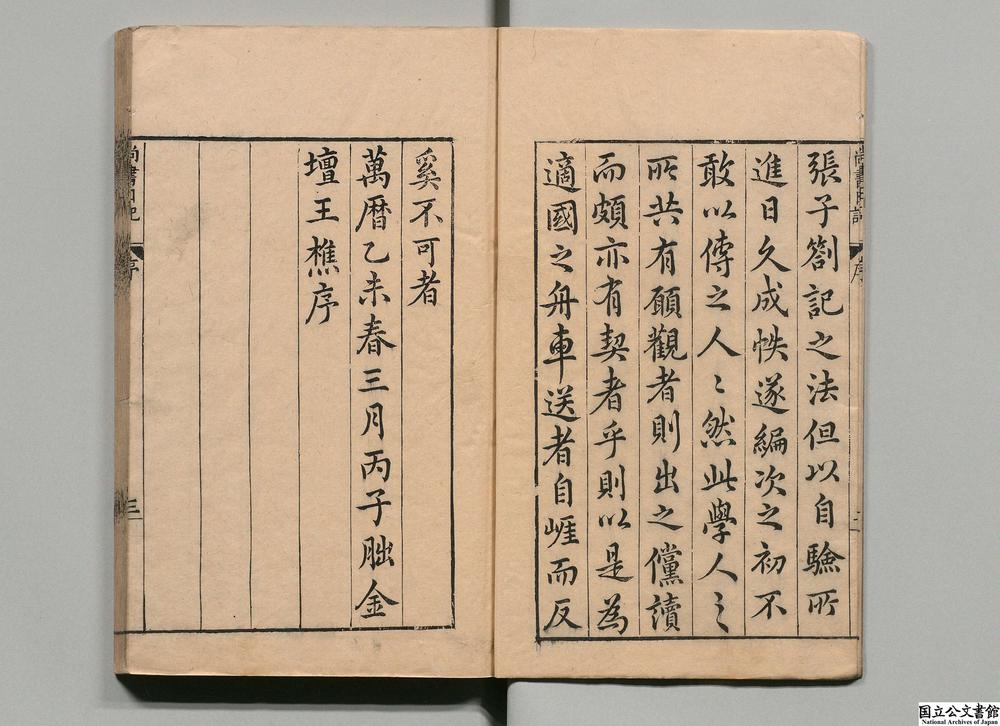 張子劄記之法但以自驗所
進日久成帙遂編次之初不
敢以傳之人〻然此學人之
所共有願觀者則出之儻讀
而頗亦有契者乎則以是為
適國之舟車送者自崖而反
奚不可者
萬曆乙未春三月丙子朏金
壇王樵序
尚書日記
序
三
国立公文書館
National Archives of Japan